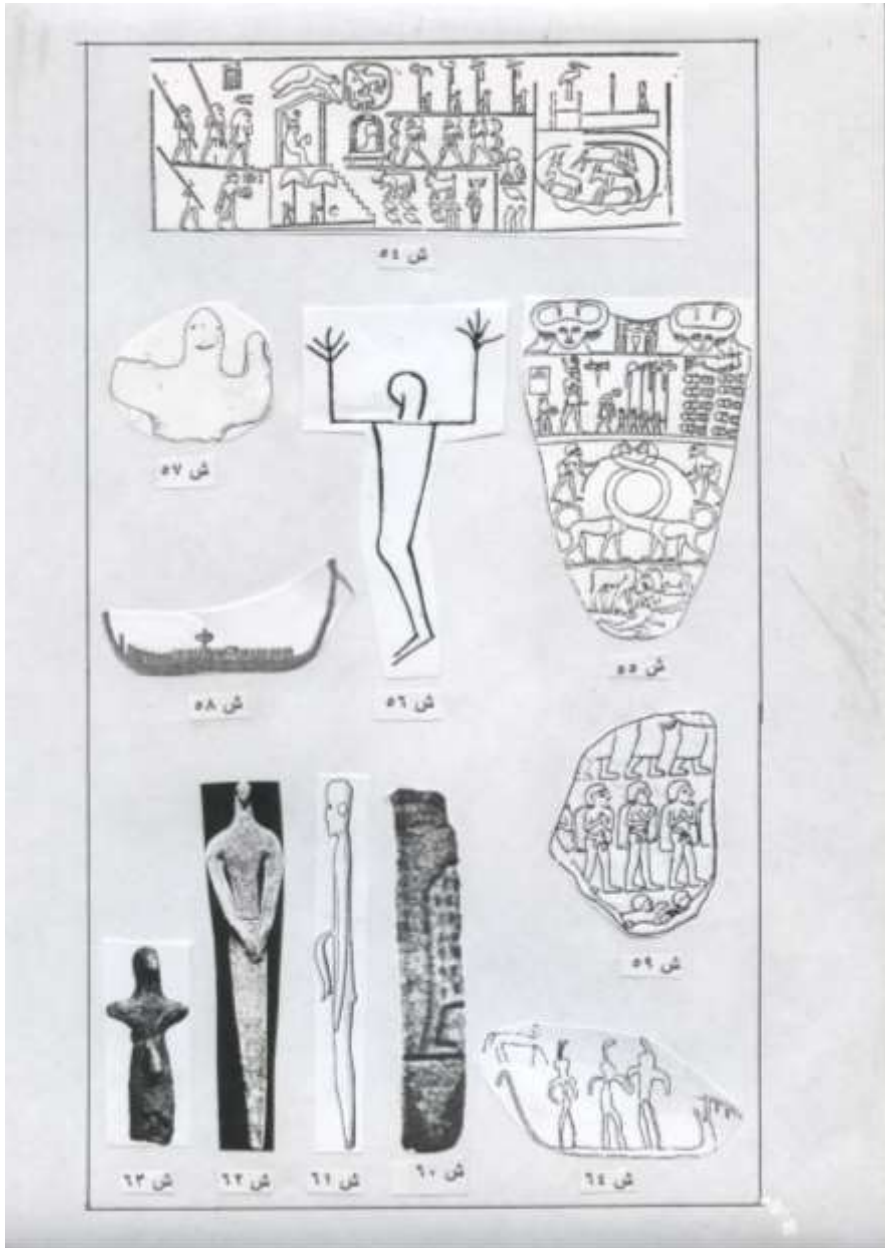 ش ٥٤
ش ٥٧
ش ٥٥
ش ٥٨
ش ٥٦
ش ٥٩
ش ٦٣
ش ٦٢
ش ٦١
ش ٦٠
ش ٦٤